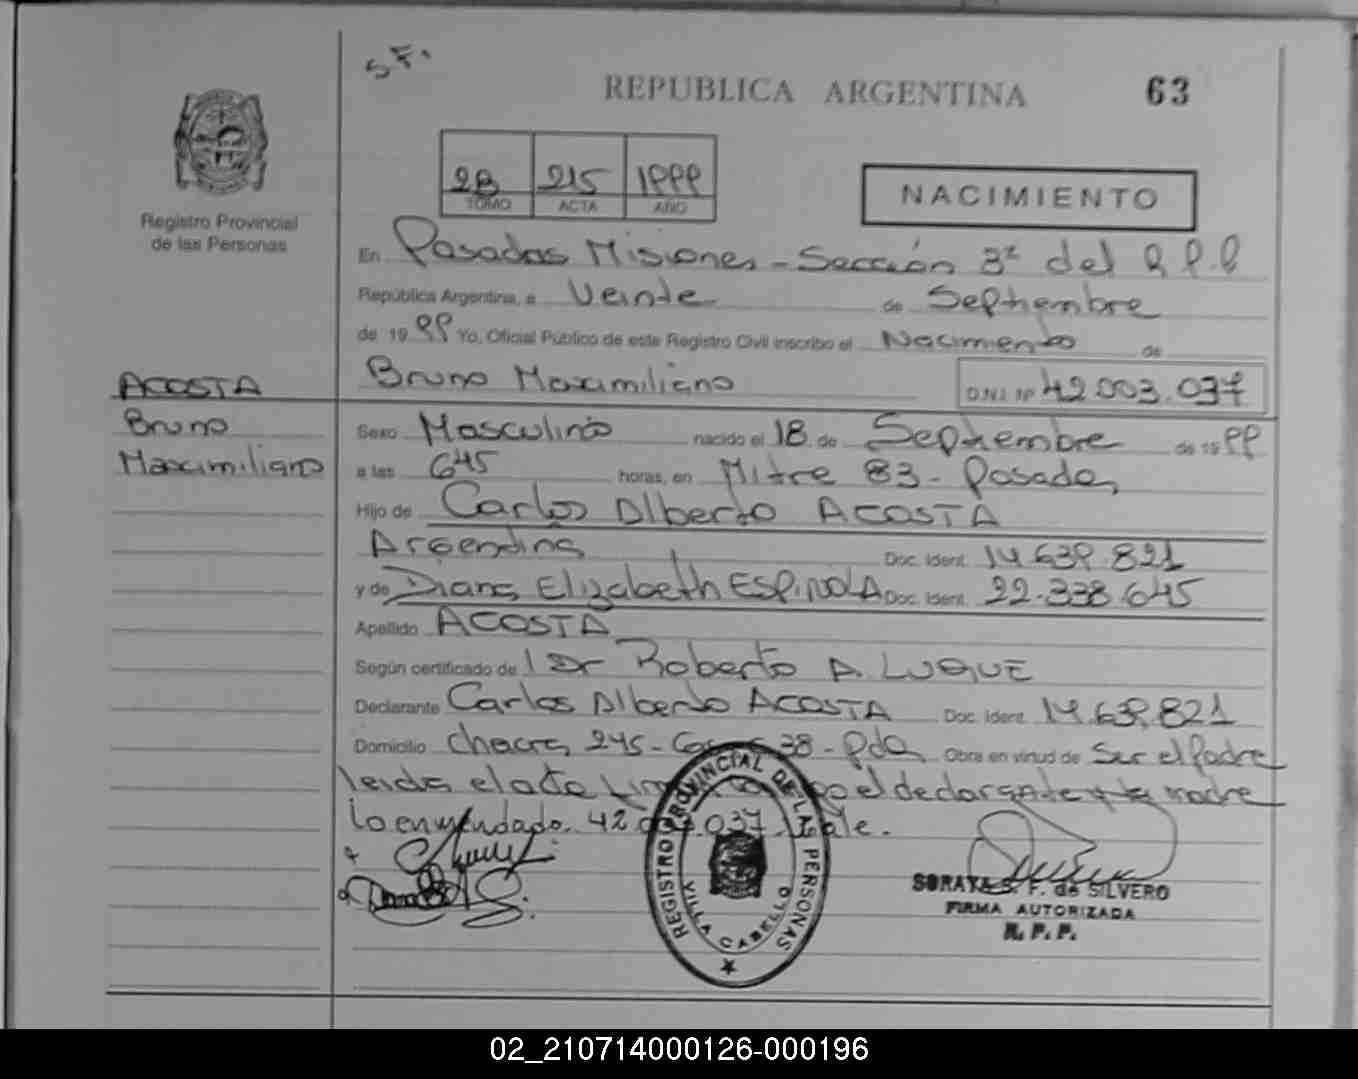 S.F.
REPUBLICA ARGENTINA 63
2B 215 1999
TOMO ACTA AÑO
NACIMIENTO
Registro Provincial
de las Personas
En Posadas Misiones - Sección 3ª del R.P.P
República Argentina, a Veinte de Septiembre
de 1999 Yo, Oficial Público de este Registro Civil inscribo el Nacimiento de
Bruno Maximiliano D.N.I. Nº 42.003.037
ACOSTA
Bruno
Maximiliano
Sexo Masculino nacido el 18 de Septiembre de 1999
a las 645 horas, en Mitre 83 - Posadas
Hijo de Carlos Alberto ACOSTA
Argentina Doc. Ident. 14.639.821
y de Diana Elizabeth ESPINOLA Doc. Ident. 22.338.645
Apellido ACOSTA
Según certificado de l Dr Roberto A. LUQUE
Declarante Carlos Alberto ACOSTA Doc. Ident. 14.639.821
Domicilio Chacra 245 - 38 - Pdas Obra en virtud de Ser el Padre
leida el acta el declarante y la madre
lo enmendado. 42 037. Vale.
REGISTRO PROVINCIAL DE LAS PERSONAS
VILLA CABELLO
SORAYA S. F. de SILVERO
FIRMA AUTORIZADA
R. P. P.
02_210714000126-000196